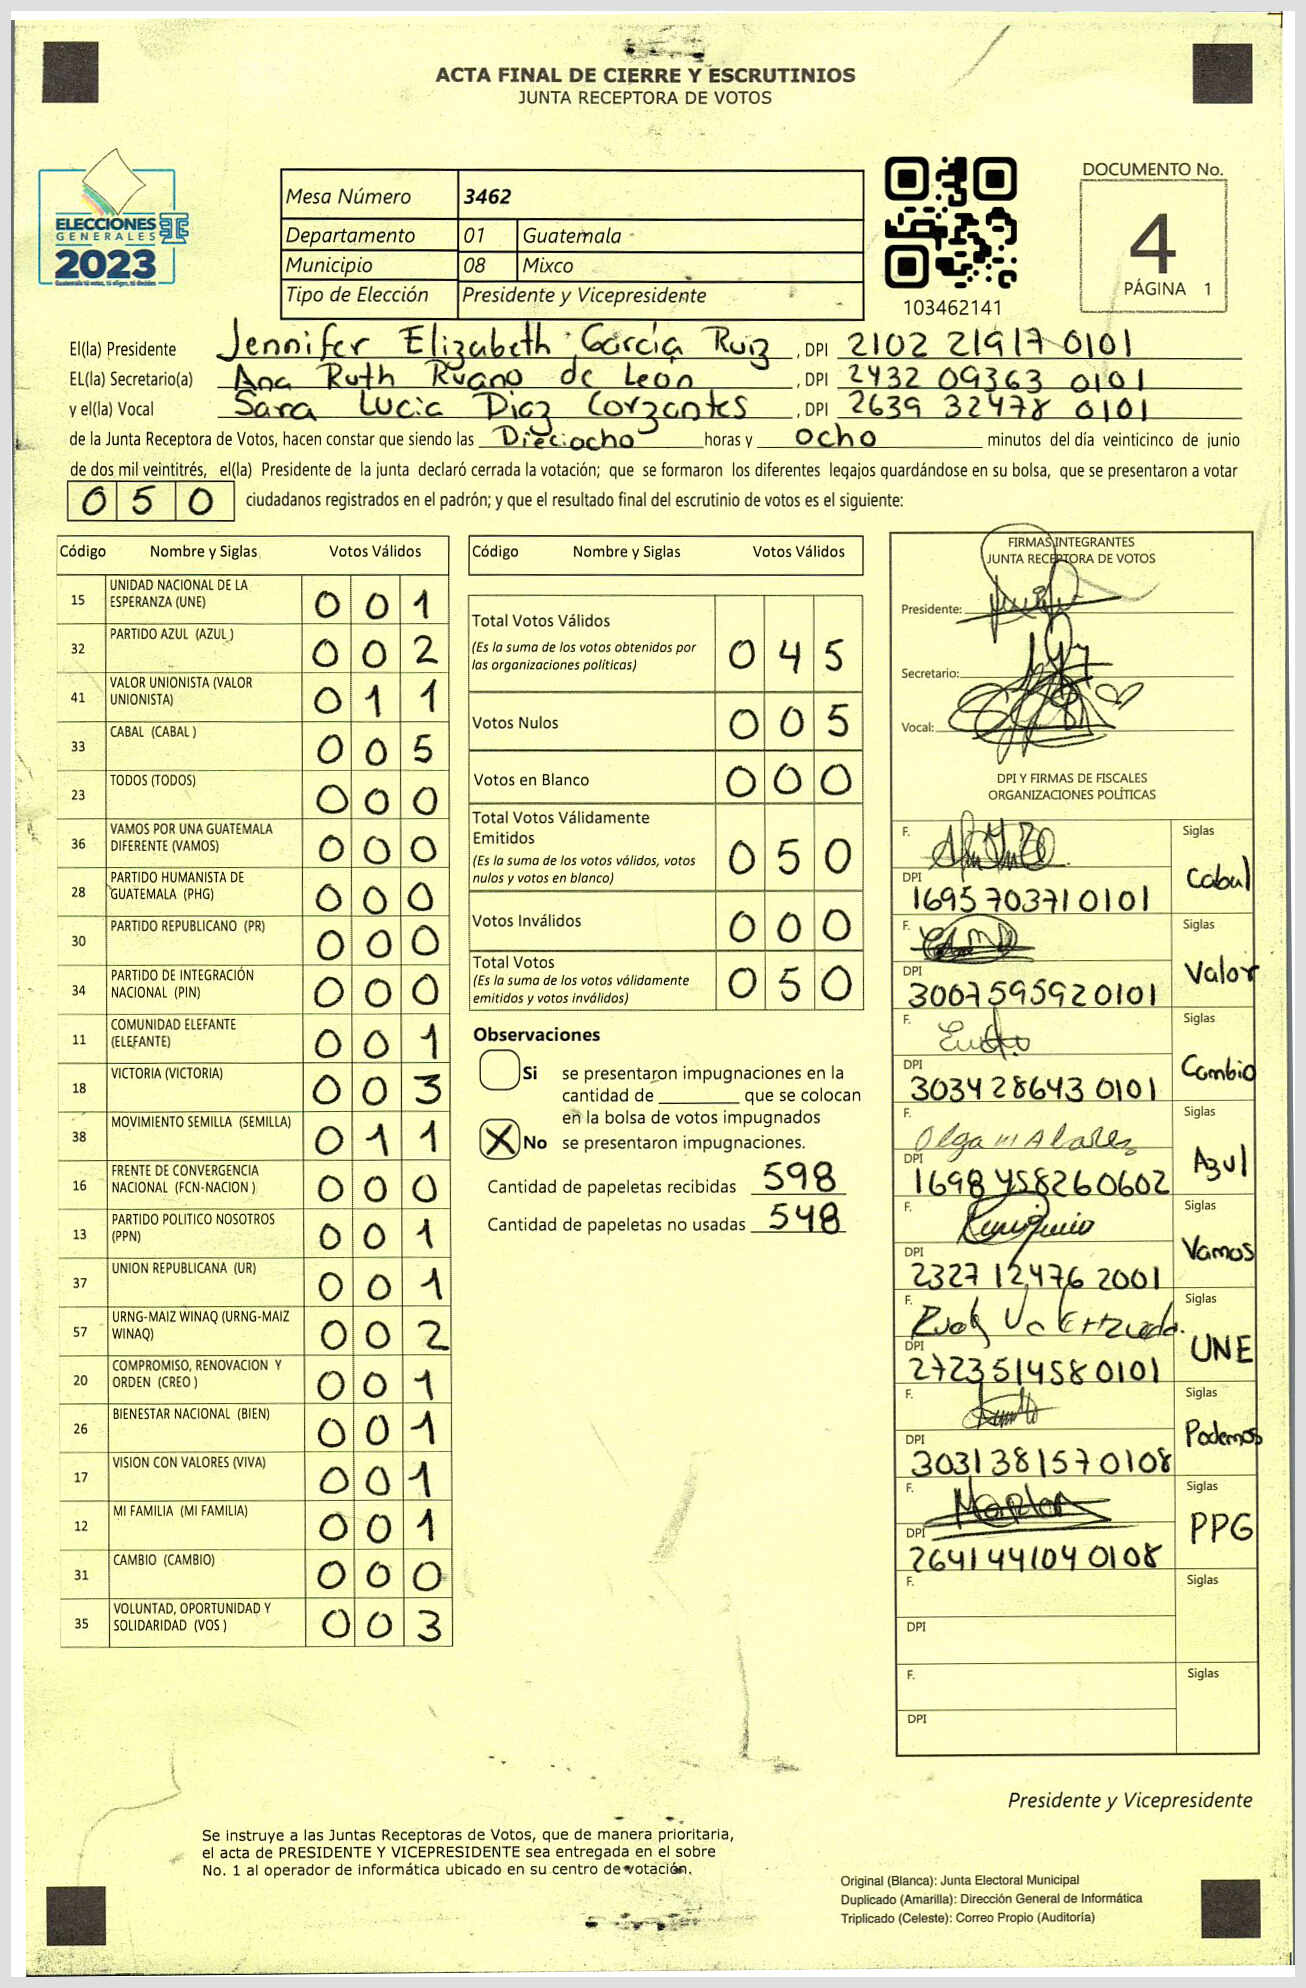 ACTA FINAL DE CIERRE Y ESCRUTINIOS
JUNTA RECEPTORA DE VOTOS
ELECCIONES
GENERALES
2023
Guatemala tú votas, tú eliges, tú decides
Mesa Número 3462
Departamento 01 Guatemala
Municipio 08 Mixco
Tipo de Elección Presidente y Vicepresidente
103462141
DOCUMENTO No.
4
PÁGINA 1
El(la) Presidente Jennifer Elizabeth García Ruiz, DPI 2102 21917 0101
EL(la) Secretario(a) Ana Ruth Ruano de León, DPI 2432 09363 0101
y el(la) Vocal Sara Lucia Diaz Corzantes, DPI 2639 32478 0101
de la Junta Receptora de Votos, hacen constar que siendo las Dieciocho horas y ocho minutos del día veinticinco de junio
de dos mil veintitrés, el(la) Presidente de la junta declaró cerrada la votación; que se formaron los diferentes legajos guardándose en su bolsa, que se presentaron a votar
050 ciudadanos registrados en el padrón; y que el resultado final del escrutinio de votos es el siguiente:
Código Nombre y Siglas Votos Válidos
15 UNIDAD NACIONAL DE LA ESPERANZA (UNE) 001
32 PARTIDO AZUL (AZUL ) 002
41 VALOR UNIONISTA (VALOR UNIONISTA) 011
33 CABAL (CABAL ) 005
23 TODOS (TODOS) 000
36 VAMOS POR UNA GUATEMALA DIFERENTE (VAMOS) 000
28 PARTIDO HUMANISTA DE GUATEMALA (PHG) 000
30 PARTIDO REPUBLICANO (PR) 000
34 PARTIDO DE INTEGRACIÓN NACIONAL (PIN) 000
11 COMUNIDAD ELEFANTE (ELEFANTE) 001
18 VICTORIA (VICTORIA) 003
38 MOVIMIENTO SEMILLA (SEMILLA) 011
16 FRENTE DE CONVERGENCIA NACIONAL (FCN-NACION ) 000
13 PARTIDO POLITICO NOSOTROS (PPN) 001
37 UNION REPUBLICANA (UR) 001
57 URNG-MAIZ WINAQ (URNG-MAIZ WINAQ) 002
20 COMPROMISO, RENOVACION Y ORDEN (CREO ) 001
26 BIENESTAR NACIONAL (BIEN) 001
17 VISION CON VALORES (VIVA) 001
12 MI FAMILIA (MI FAMILIA) 001
31 CAMBIO (CAMBIO) 000
35 VOLUNTAD, OPORTUNIDAD Y SOLIDARIDAD (VOS ) 003
Código Nombre y Siglas Votos Válidos
Total Votos Válidos 045
(Es la suma de los votos obtenidos por
las organizaciones políticas)
Votos Nulos 005
Votos en Blanco 000
Total Votos Válidamente
Emitidos 050
(Es la suma de los votos válidos, votos
nulos y votos en blanco)
Votos Inválidos 000
Total Votos 050
(Es la suma de los votos válidamente
emitidos y votos inválidos)
Observaciones
Si se presentaron impugnaciones en la
cantidad de ________ que se colocan
en la bolsa de votos impugnados
X No se presentaron impugnaciones.
Cantidad de papeletas recibidas 598
Cantidad de papeletas no usadas 548
FIRMAS INTEGRANTES
JUNTA RECEPTORA DE VOTOS
Presidente:
Secretario:
Vocal:
DPI Y FIRMAS DE FISCALES
ORGANIZACIONES POLÍTICAS
F. Siglas
DPI 1695703710101 Cabal
F. Siglas
DPI 3007595920101 Valor
F. Siglas
DPI 3034286430101 Cambio
F. Olga M Alvarez Siglas
DPI 1698458260602 Azul
F. Siglas
DPI 2327 12476 2001 Vamos
F. Siglas
DPI 2723514580101 UNE
F. Siglas
DPI 3031381570108 Podemos
F. Siglas
DPI 2641441040108 PPG
F. Siglas
DPI
F. Siglas
DPI
Presidente y Vicepresidente
Se instruye a las Juntas Receptoras de Votos, que de manera prioritaria,
el acta de PRESIDENTE Y VICEPRESIDENTE sea entregada en el sobre
No. 1 al operador de informática ubicado en su centro de votación.
Original (Blanca): Junta Electoral Municipal
Duplicado (Amarilla): Dirección General de Informática
Triplicado (Celeste): Correo Propio (Auditoría)